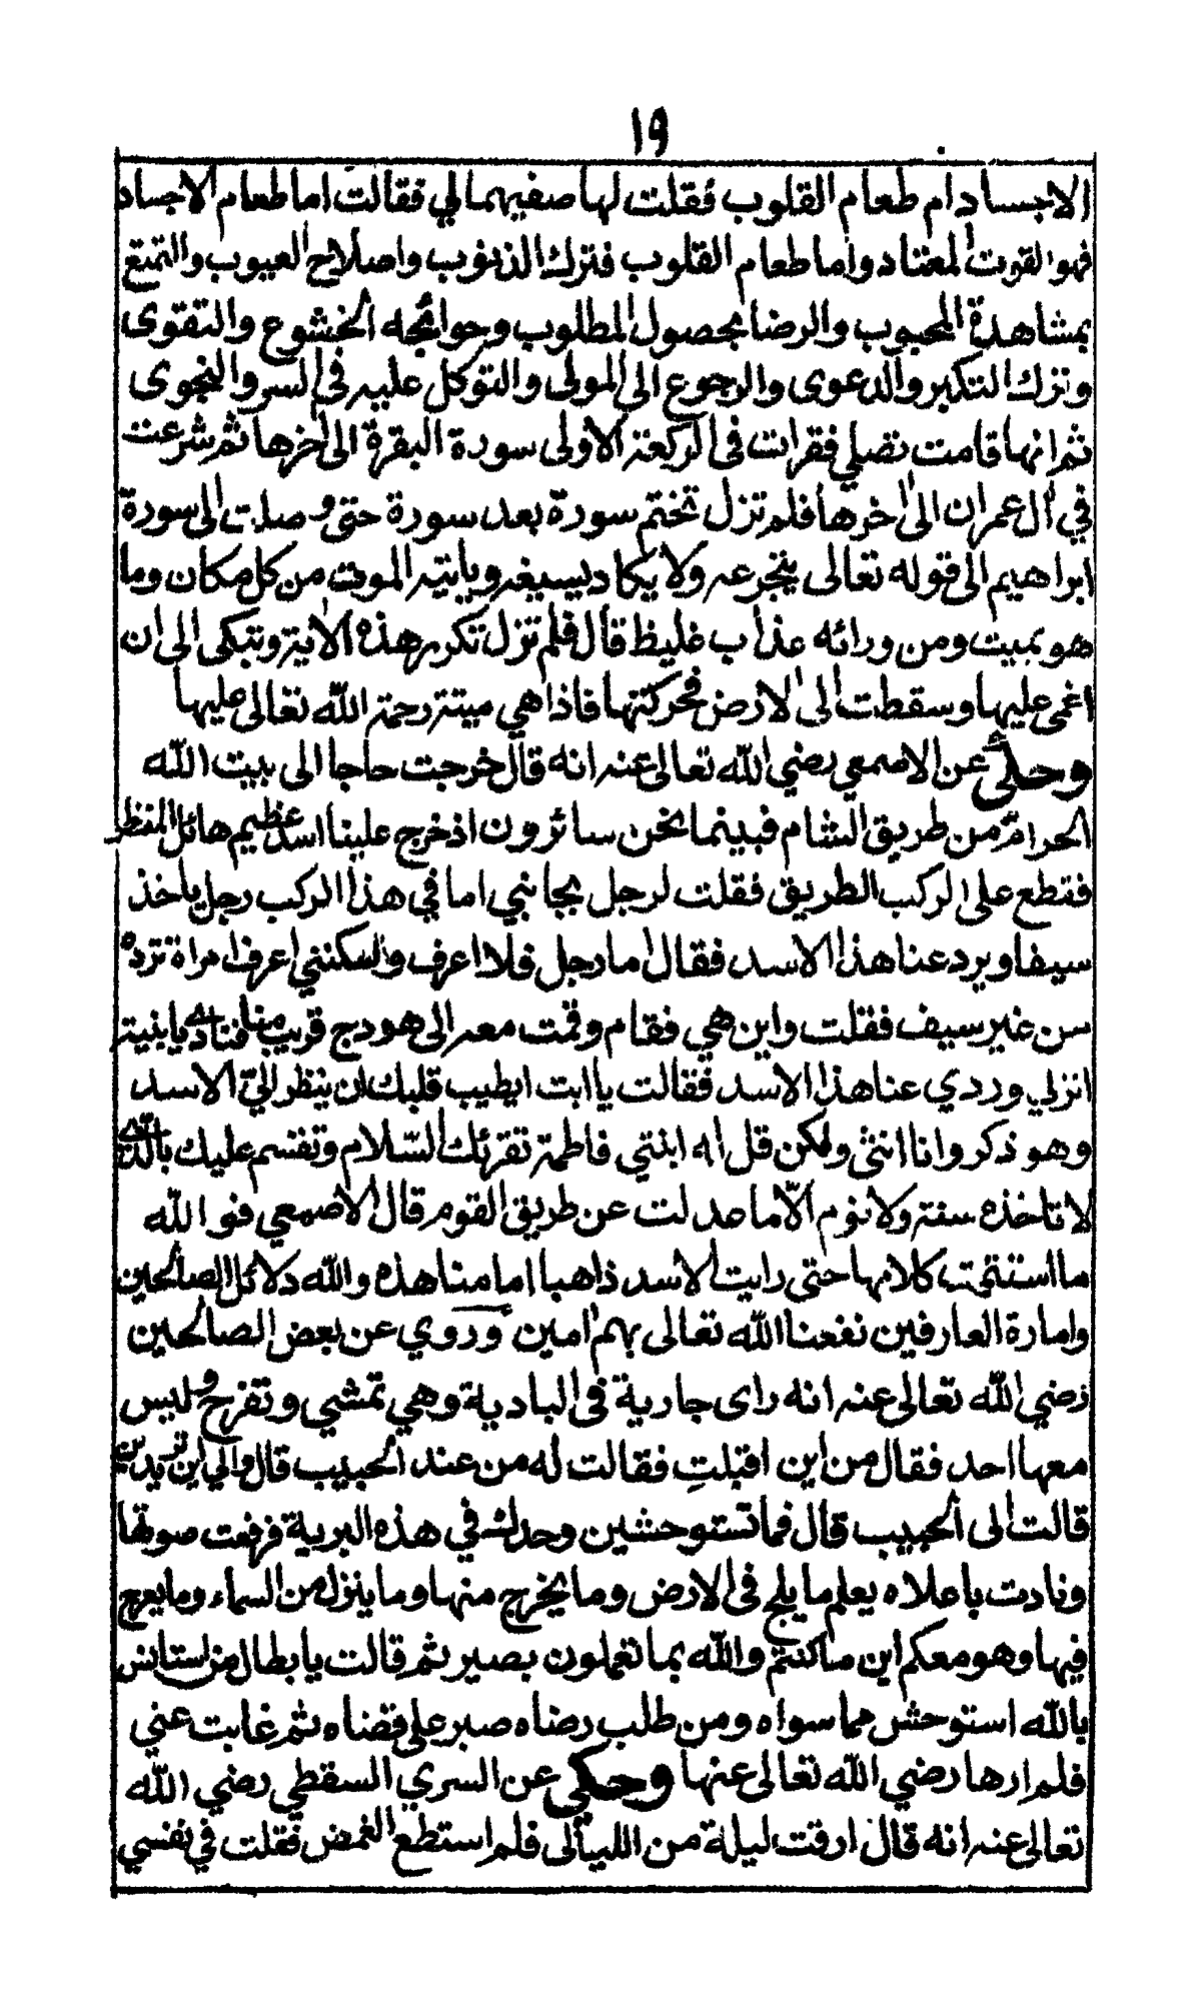 ١٩
الاجساد ام طعام القلوب فقلت لها صفيهما لي فقالت اما طعام الاجساد
فهو القوت المعتاد واما طعام القلوب فترك الذنوب واصلاح العيوب والتمتع
بمشاهدة المحبوب والرضا بحصول المطلوب وحوائجه الخشوع والتقوى
وترك التكبر والدعوى والرجوع الى المولى والتوكل عليه في السر والنجوى
ثم انها قامت تصلي فقرات في الركعة الاولى سورة البقرة الى اخرها ثم شرعت
في ال عمران الى اخرها فلم تزل تختم سورة بعد سورة حتى وصلت الى سورة
ابراهيم الى قوله تعالى يتجرعه ولا يكاد يسيغه وياتيه الموت من كل مكان وما
هو بميت ومن ورائه عذاب غليظ قال فلم تزل تكرر هذه الاية وتبكي الى ان
اغمى عليها وسقطت الى الارض فحركتها فاذا هي ميتة رحمة الله تعالى عليها
وحكي عن الاصمعي رضي الله تعالى عنه انه قال خرجت حاجا الى بيت الله
الحرام من طريق الشام فبينما نحن سائرون اذ خرج علينا اسد عظيم هائل المنظر
فقطع على الركب الطريق فقلت لرجل بجانبي اما في هذا الركب رجل ياخذ
سيفا ويرد عنا هذا الاسد فقال اما رجل فلا اعرف ولكنني اعرف امراة ترده
من غير سيف فقلت واين هي فقام وقمت معه الى هودج قريب منا فنادى يا بنية
انزلي وردي عنا هذا الاسد فقالت يا ابت ايطيب قلبك ان ينظر اليّ الاسد
وهو ذكر وانا انثى ولكن قل له ابنتي فاطمة تقرئك السّلام وتقسم عليك بالذي
لا تاخذه سنة ولا نوم الاّ ما عدلت عن طريق القوم قال الاصمعي فو الله
ما استتمت كلامها حتى رايت الاسد ذاهبا امامنا هذه والله دلائل الصالحين
وامارة العارفين نفعنا الله تعالى بهم امين وروي عن بعض الصالحين
رضي الله تعالى عنه انه راى جارية في البادية وهي تمشي وتفرح وليس
معها احد فقال من اين اقبلتِ فقالت له من عند الحبيب قال والى اين تريدين
قالت الى الحبيب قال فما تستوحشين وحدك في هذه البرية فرفعت صوتها
ونادت باعلاه يعلم ما يلج في الارض وما يخرج منها وما ينزل من السماء وما يعرج
فيها وهو معكم اين ما كنتم والله بما تعملون بصير ثم قالت يا بطال من استانس
بالله استوحش مما سواه ومن طلب رضاه صبر على قضاه ثم غابت عني
فلم ارها رضي الله تعالى عنها وحكي عن السري السقطي رضي الله
تعالى عنه انه قال ارقت ليلة من الليالي فلم استطع الغمض فقلت في نفسي